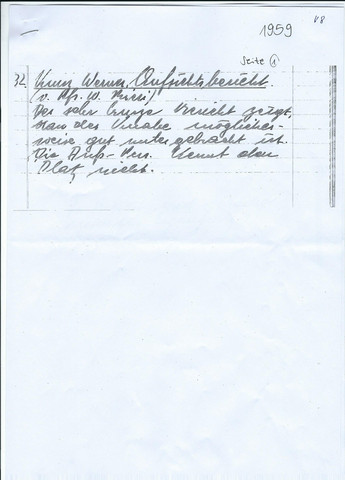 V8
1959
Seite 1
32. Kunz Werner, Aufsichtsbericht.
(v. Pfr. W.
Der sehr kurze Bericht zeigt,
dass der Knabe möglicher-
weise gut untergebracht ist.
Die Aufs- kennt den
Platz nicht.